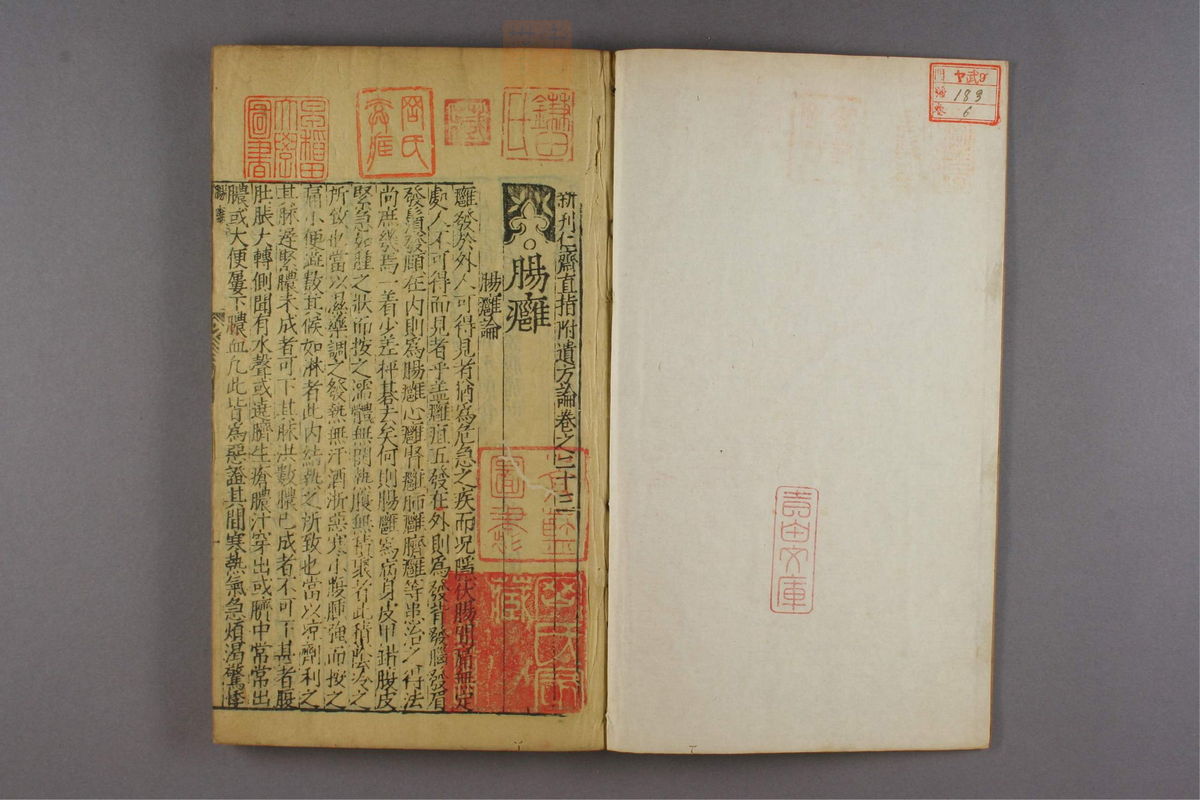 新刋仁齋直指附遺方論卷之二十三
腸癰
腸癰論
癰發於外人可得見者猶爲危急之疾而况隱伏腸間痛無定
處人不可得而見者乎盖癰疽五發在外則爲發背發腦發眉
發鬚發頤在内則爲腸癰心癰腎癰肺癰臍癰等患治之得法
尚庶幾焉一着少差枰碁去矣何則腸癰爲病身皮甲錯腹皮
緊急如腫之狀而按之濡體無間熱腹無積聚者此積陰冷之
所攸也當以温藥調之發熱無汗洒淅惡寒小腹腫強而按之
痛小便澁數其候如淋者此内結熱之所致也當以凉劑利之
其脉遅緊膿未成者可下其脉洪數膿已成者不可下甚者腹
肚脹大轉側聞有水聲或遶臍生瘡膿汁穿出或臍中常常出
膿或大便屢下膿血凡此皆爲惡證其間寒熱氣急煩渇驚悸
早稻田
大學
圖書
氏
藏
圖書
青田文庫
門
ヤ武9
號
189
卷
6